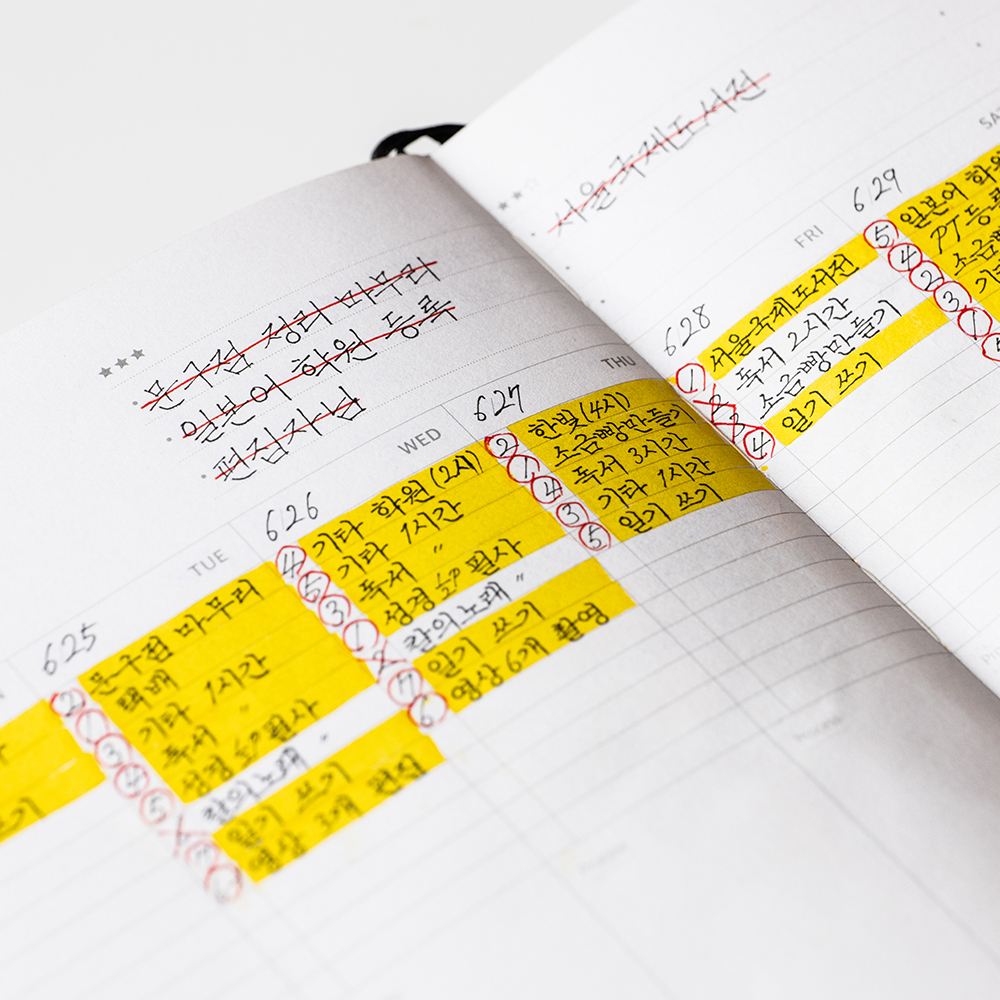 서울국제도서전
문구점 정리 마무리
일본어 학원 등록
편집자님
TUE
625
문구점 마무리
택배
기타 1시간
독서 〃
성경 50 필사
칼의노래 〃
일기 쓰기
영상 3개 편집
WED
626
④ 기타 학원(2시)
⑤ 기타 1시간
③ 독서 〃
① 성경 50 필사
칼의노래 〃
⑦ 일기 쓰기
⑥ 영상 6개 촬영
THU
627
② 한빛(4시)
① 소금빵만들기
④ 독서 3시간
③ 기타 1시간
⑤ 일기 쓰기
FRI
628
① 서울국제도서전
독서 2시간
소금빵만들기
④ 일기 쓰기
SAT
629
⑤ 일본어 학원
④ PT 등록
② 소금빵
③ 기타